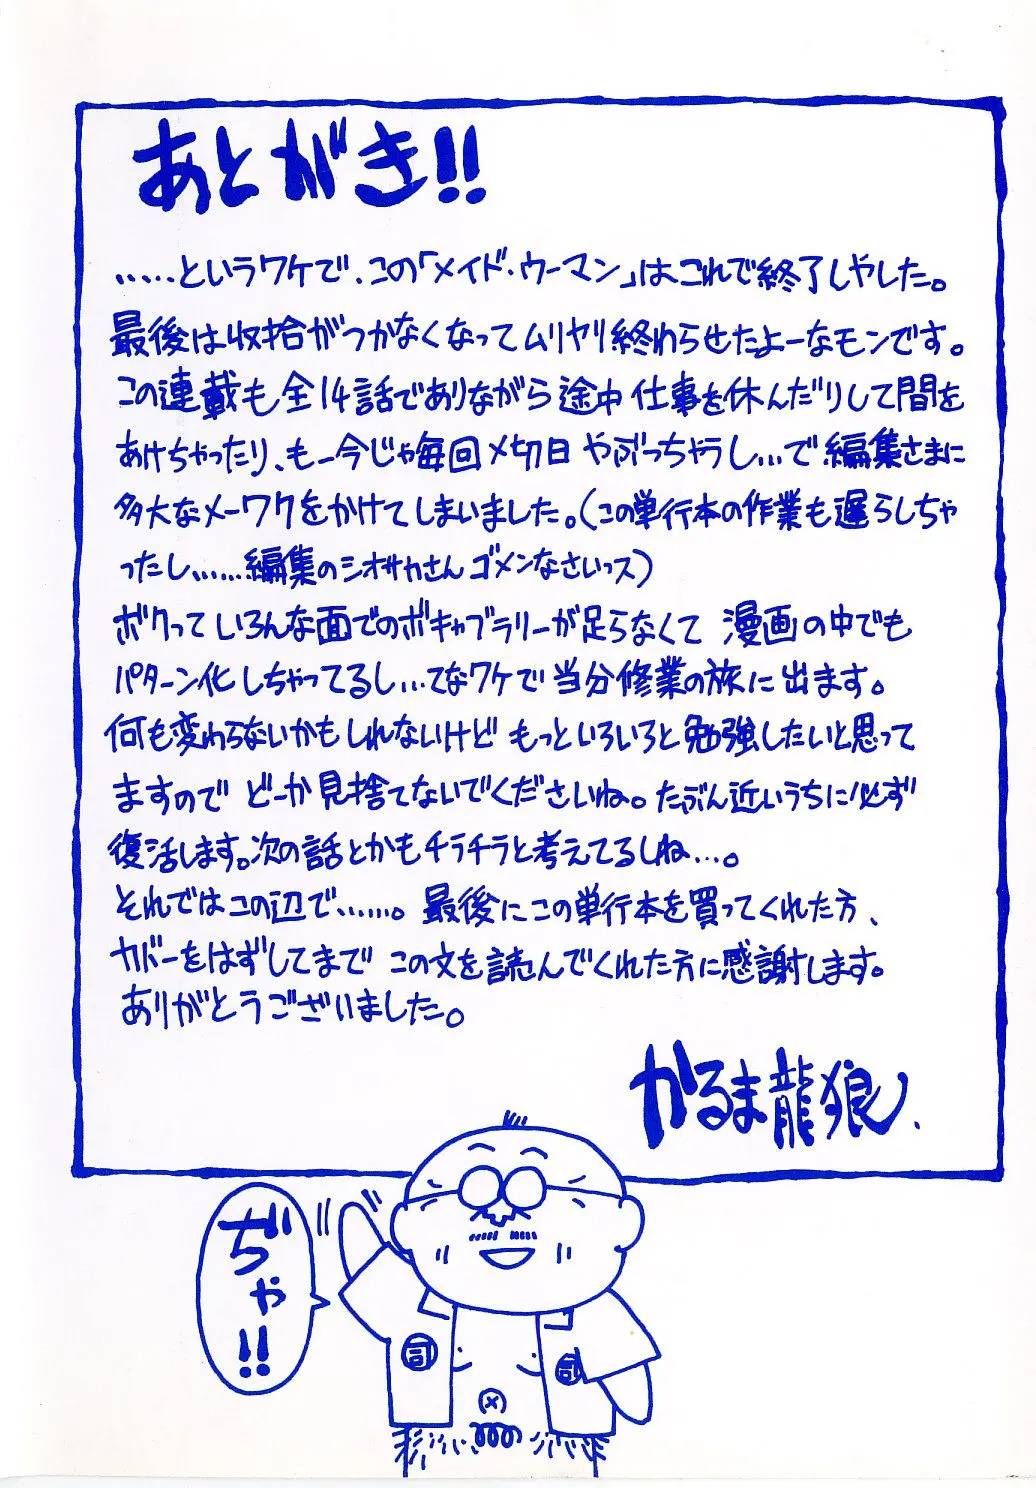 あとがき!!
……というワケで、この「メイド・ウーマン」はこれで終了しやした。
最後は収拾がつかなくなってムリヤリ終わらせたよーなモンです。
この連載も全14話でありながら途中仕事を休んだりして間を
あけちゃったり、も一今じゃ毎回〆切日やぶっちゃうし…で編集さまに
多大なメーワクをかけてしまいました。(この単行本の作業も遅らしちゃ
ったし……編集のシオサカさんゴメンなさいっス)
ボクっていろんな面でのボキャブラリーが足らなくて漫画の中でも
パターン化しちゃってるし…てなワケで当分修業の旅に出ます。
何も変わらないかもしれないけどもっといろいろと勉強したいと思って
ますのでどーか見捨てないでくださいね。たぶん近いうちに必ず
復活します。次の話とかもチラチラと考えてるしね…。
それではこの辺で……。最後にこの単行本を買ってくれた方、
カバーをはずしてまでこの文を読んでくれた方に感謝します。
ありがとうございました。
かるま龍狼、
ぢゃ!!
司
司